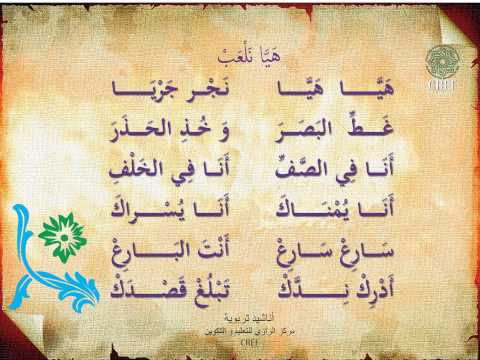 هَيَّا نَلْعَبْ
CREF
هَيَّـــا هَيَّـــا نَجْـرِ جَرْيَـــا
غَـــطِّ البَصَـرَ وَ خُـذِ الحَـذَرَ
أَنَـا فِي الصَّـفِّ أَنَـا فِي الخَلْـفِ
أَنَـا يُمْنَـاكَ أَنَـا يُسْـرَاكَ
سَـارِعْ سَـارِعْ أَنْتَ البَـارِعْ
أَدْرِكْ نِـــدَّكْ تَبْلُـغْ قَصْـدَكْ
أناشيد تربوية
مركز الرازي للتعليم و التكوين
CREF